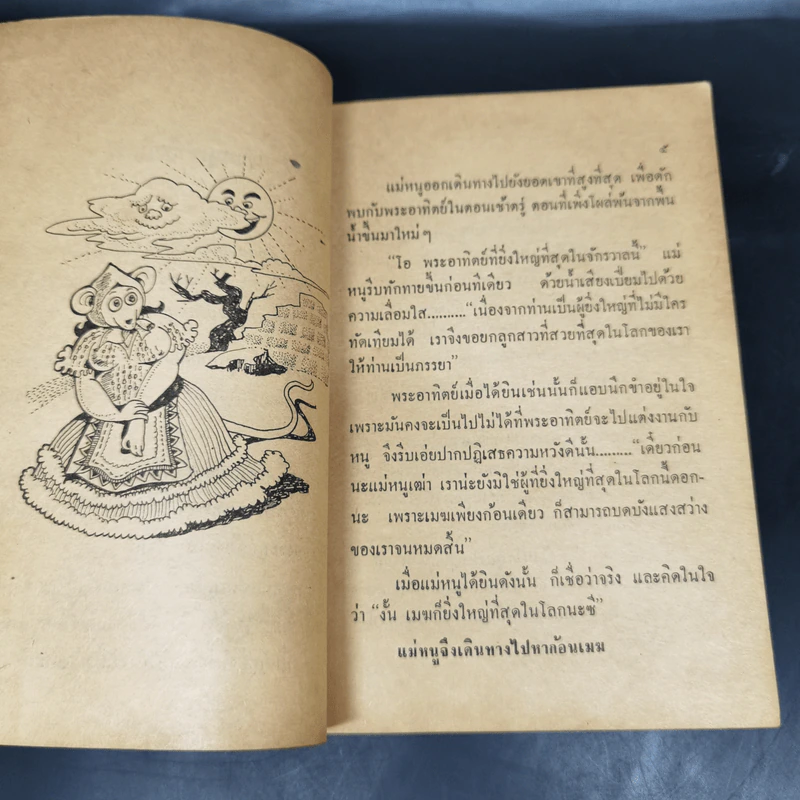 ๕
แม่หนูออกเดินทางไปยังยอดเขาที่สูงที่สุด เพื่อดัก
พบกับพระอาทิตย์ในตอนเช้าตรู่ ตอนที่เพิ่งโผล่พ้นจากพื้น
น้ำขึ้นมาใหม่ๆ
“โอ พระอาทิตย์ที่ยิ่งใหญ่ที่สุดในจักรวาลนี้” แม่
หนูรีบทักทายขึ้นก่อนทีเดียว ด้วยน้ำเสียงเปี่ยมไปด้วย
ความเลื่อมใส..........“เนื่องจากท่านเป็นผู้ยิ่งใหญ่ที่ไม่มีใคร
ทัดเทียมได้ เราจึงขอยกลูกสาวที่สวยที่สุดในโลกของเรา
ให้ท่านเป็นภรรยา”
พระอาทิตย์เมื่อได้ยินเช่นนั้นก็แอบนึกขำอยู่ในใจ
เพราะมันคงจะเป็นไปไม่ได้ที่พระอาทิตย์จะไปแต่งงานกับ
หนู จึงรีบเอ่ยปากปฏิเสธความหวังดีนั้น.........“เดี๋ยวก่อน
นะแม่หนูเฒ่า เราน่ะยังมิใช่ผู้ที่ยิ่งใหญ่ที่สุดในโลกนี้ดอก-
นะ เพราะเมฆเพียงก้อนเดียว ก็สามารถบดบังแสงสว่าง
ของเราจนหมดสิ้น”
เมื่อแม่หนูได้ยินดังนั้น ก็เชื่อว่าจริง และคิดในใจ
ว่า “งั้น เมฆก็ยิ่งใหญ่ที่สุดในโลกนะซี”
แม่หนูจึงเดินทางไปหาก้อนเมฆ